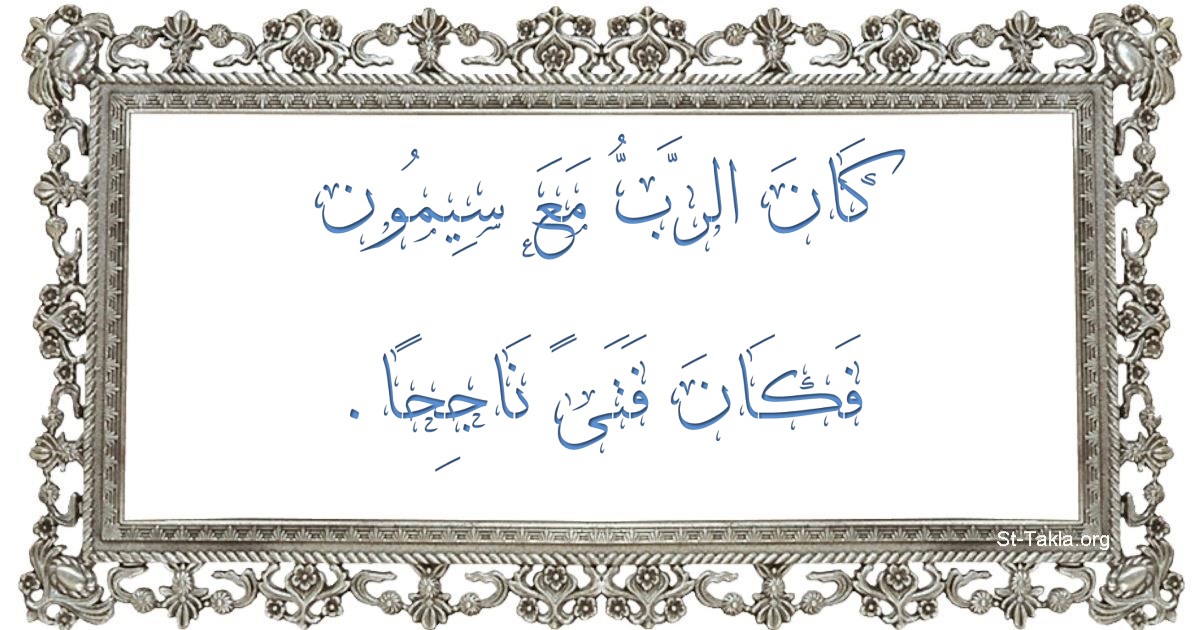 كَانَ الرَّبُّ مَعَ سِيمُون
فَكَانَ فَتَىً نَاجِحًا .
St-Takla.org